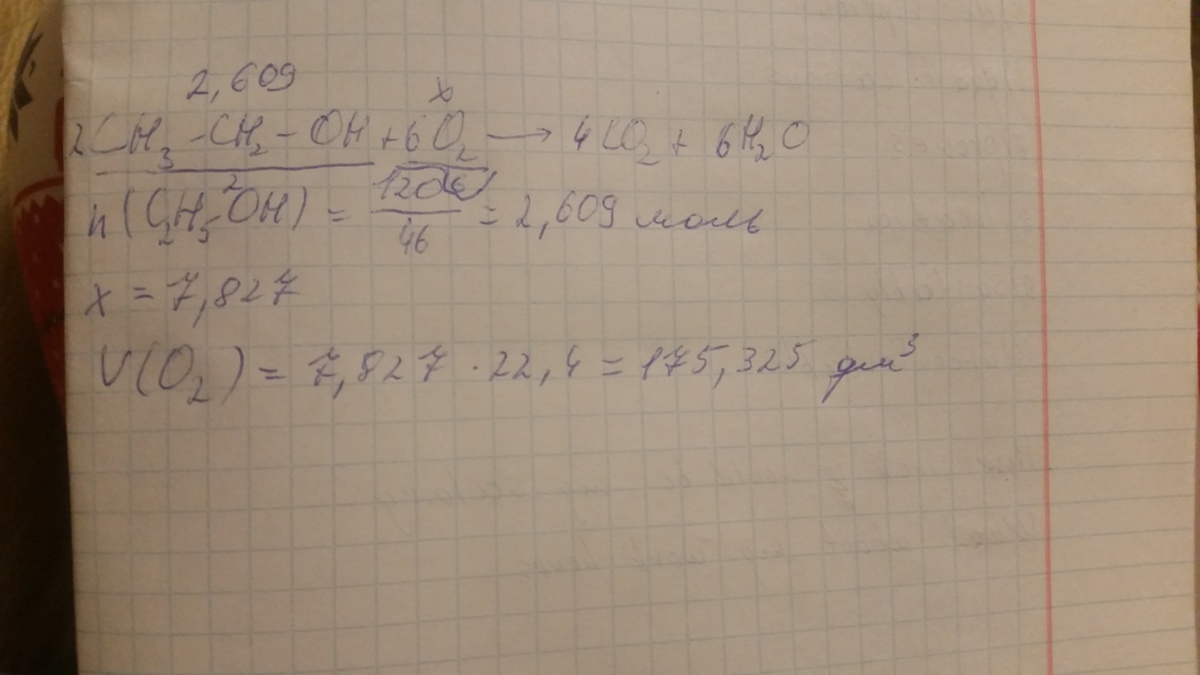 2,609 x
2CH₃-CH₂-OH+6O₂ → 4CO₂+ 6H₂O
2
n(C₂H₅OH) = 120/46 = 2,609 моль
x = 7,827
V(O₂) = 7,827 · 22,4 = 175,325 дм³